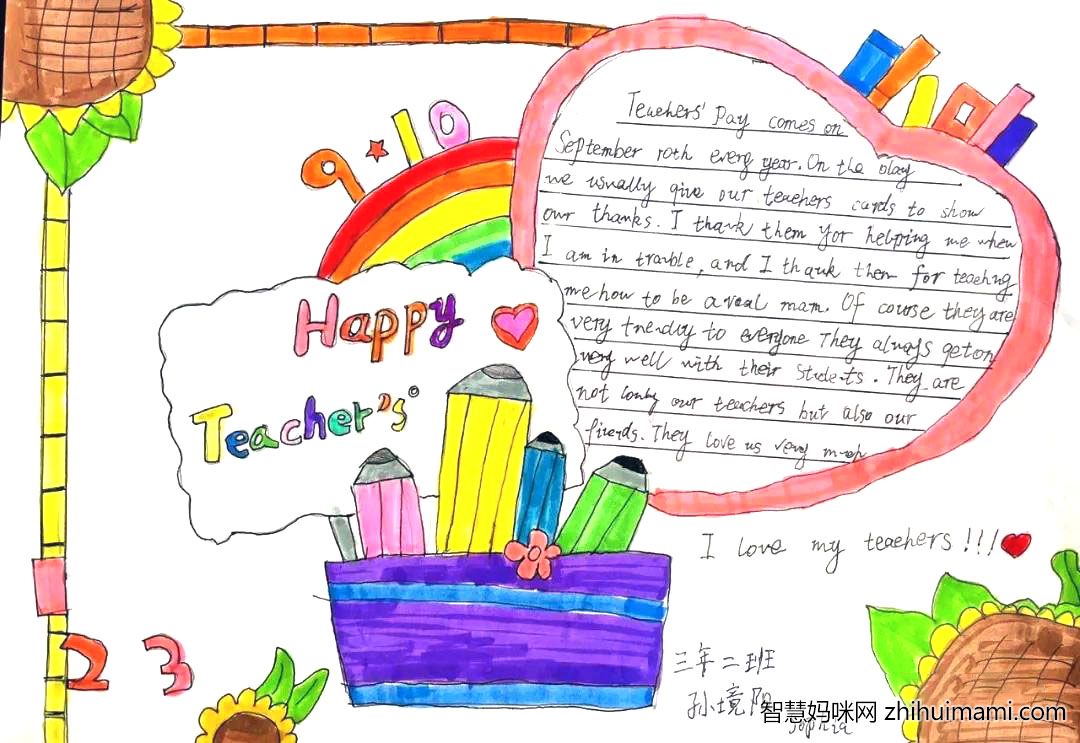 9.10
Happy
Teacher's
Teachers' Day comes on
September 10th every year. On the day
we usually give our teachers cards to show
our thanks. I thank them for helping me when
I am in trouble, and I thank them for teaching
me how to be a real mam. Of course they are
very friendly to everyone They always get on
very well with their students. They are
not only our teachers but also our
friends. They love us very
I love my teachers!!!
2 3
三年二班
孙境阳
智慧妈咪网 zhihuimami.com
Sophia